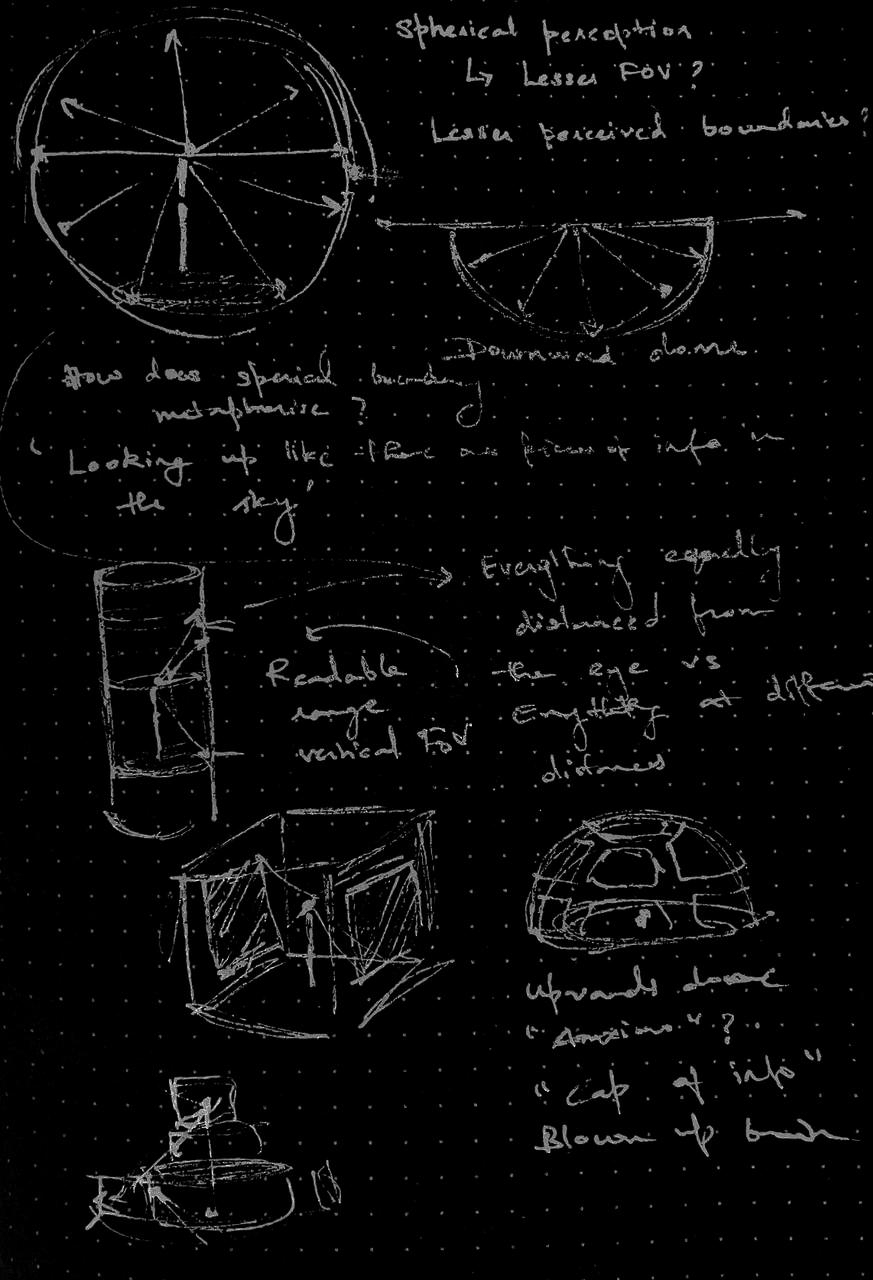 Spherical perception
↳ Lesser FOV ?
Lesser perceived boundaries ?
Downward dome
How does sperical boundary
metaphorise ?
'Looking up like there are pieces of info in
the sky'
Everything equally
distanced from
the eye vs
Everything at different
distances
Readable
range
vertical FOV
Upwards dome
" " ?
"Cap of info"
Blown up